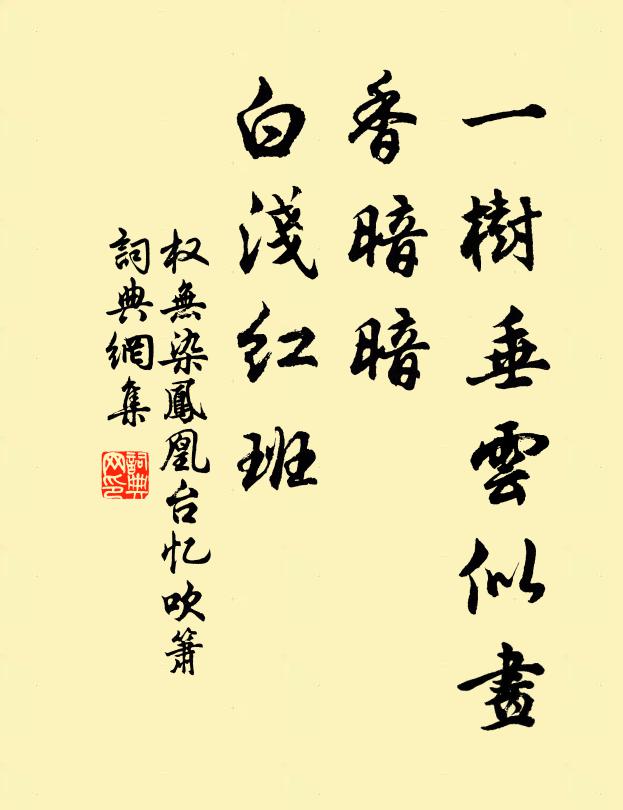 一樹垂雲似畫
香暗暗
白淺紅班
权無染鳳凰台忆吹簫
詞典網集
詞典网印